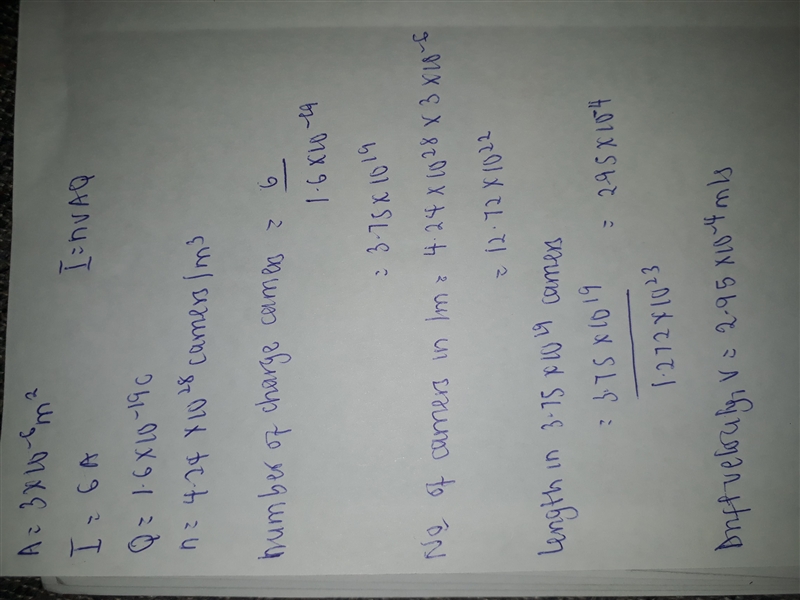 A = 3×10⁻⁶m²
I = 6 A I = nVAQ
Q = 1.6×10⁻¹⁹C
n = 4.24 ×10²⁸ carriers/m³
number of charge carriers = 6
1.6×10⁻¹⁹
= 3.75×10¹⁹
No of carriers in 1m = 4.24×10²⁸×3×10⁻⁶
= 12.72×10²²
length in 3.75×10¹⁹ carriers
= 3.75×10¹⁹ = 2.95×10⁻⁴
1.272×10²³
Drift velocity, V = 2.95×10⁻⁴m/s